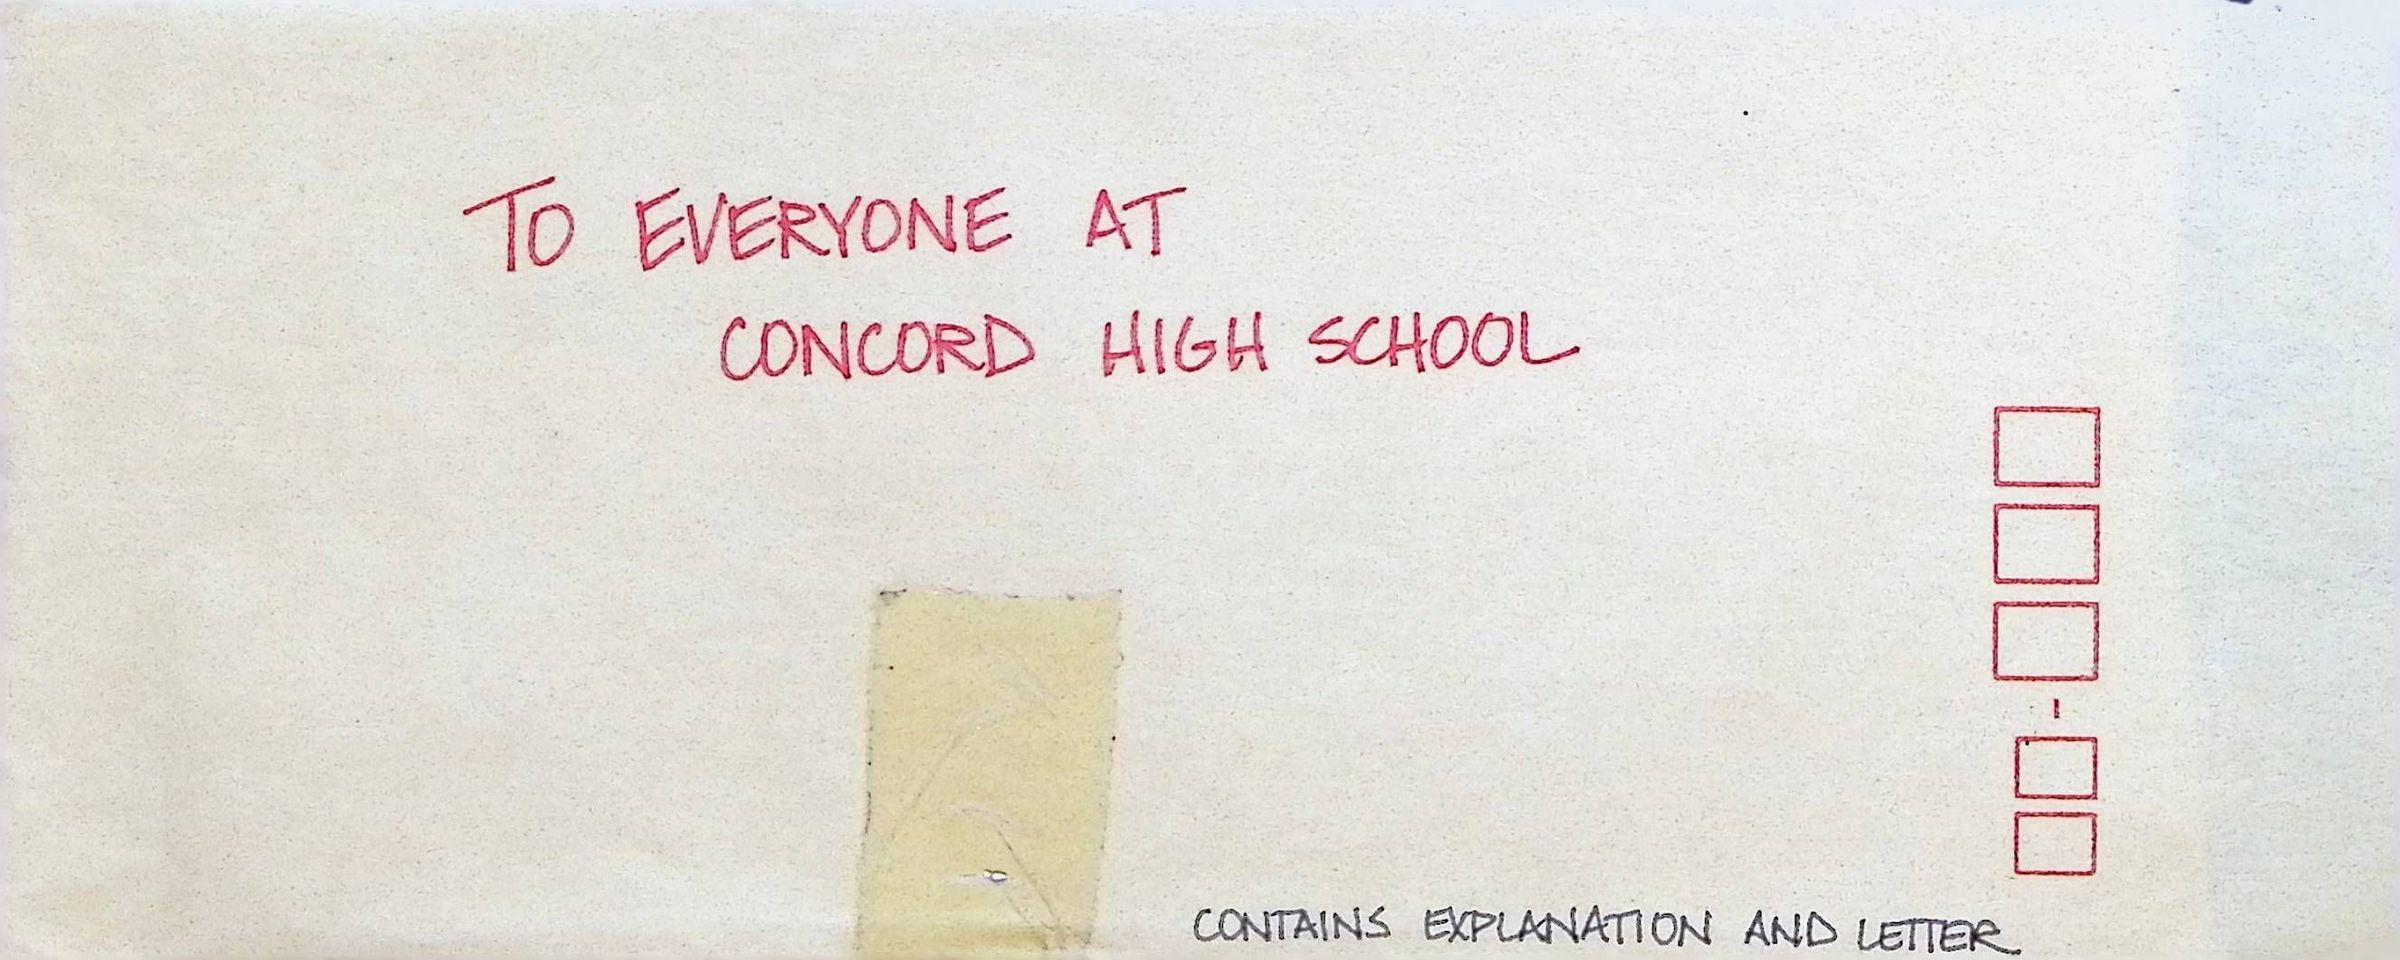 TO EVERYONE AT
CONCORD HIGH SCHOOL
CONTAINS EXPLANATION AND LETTER